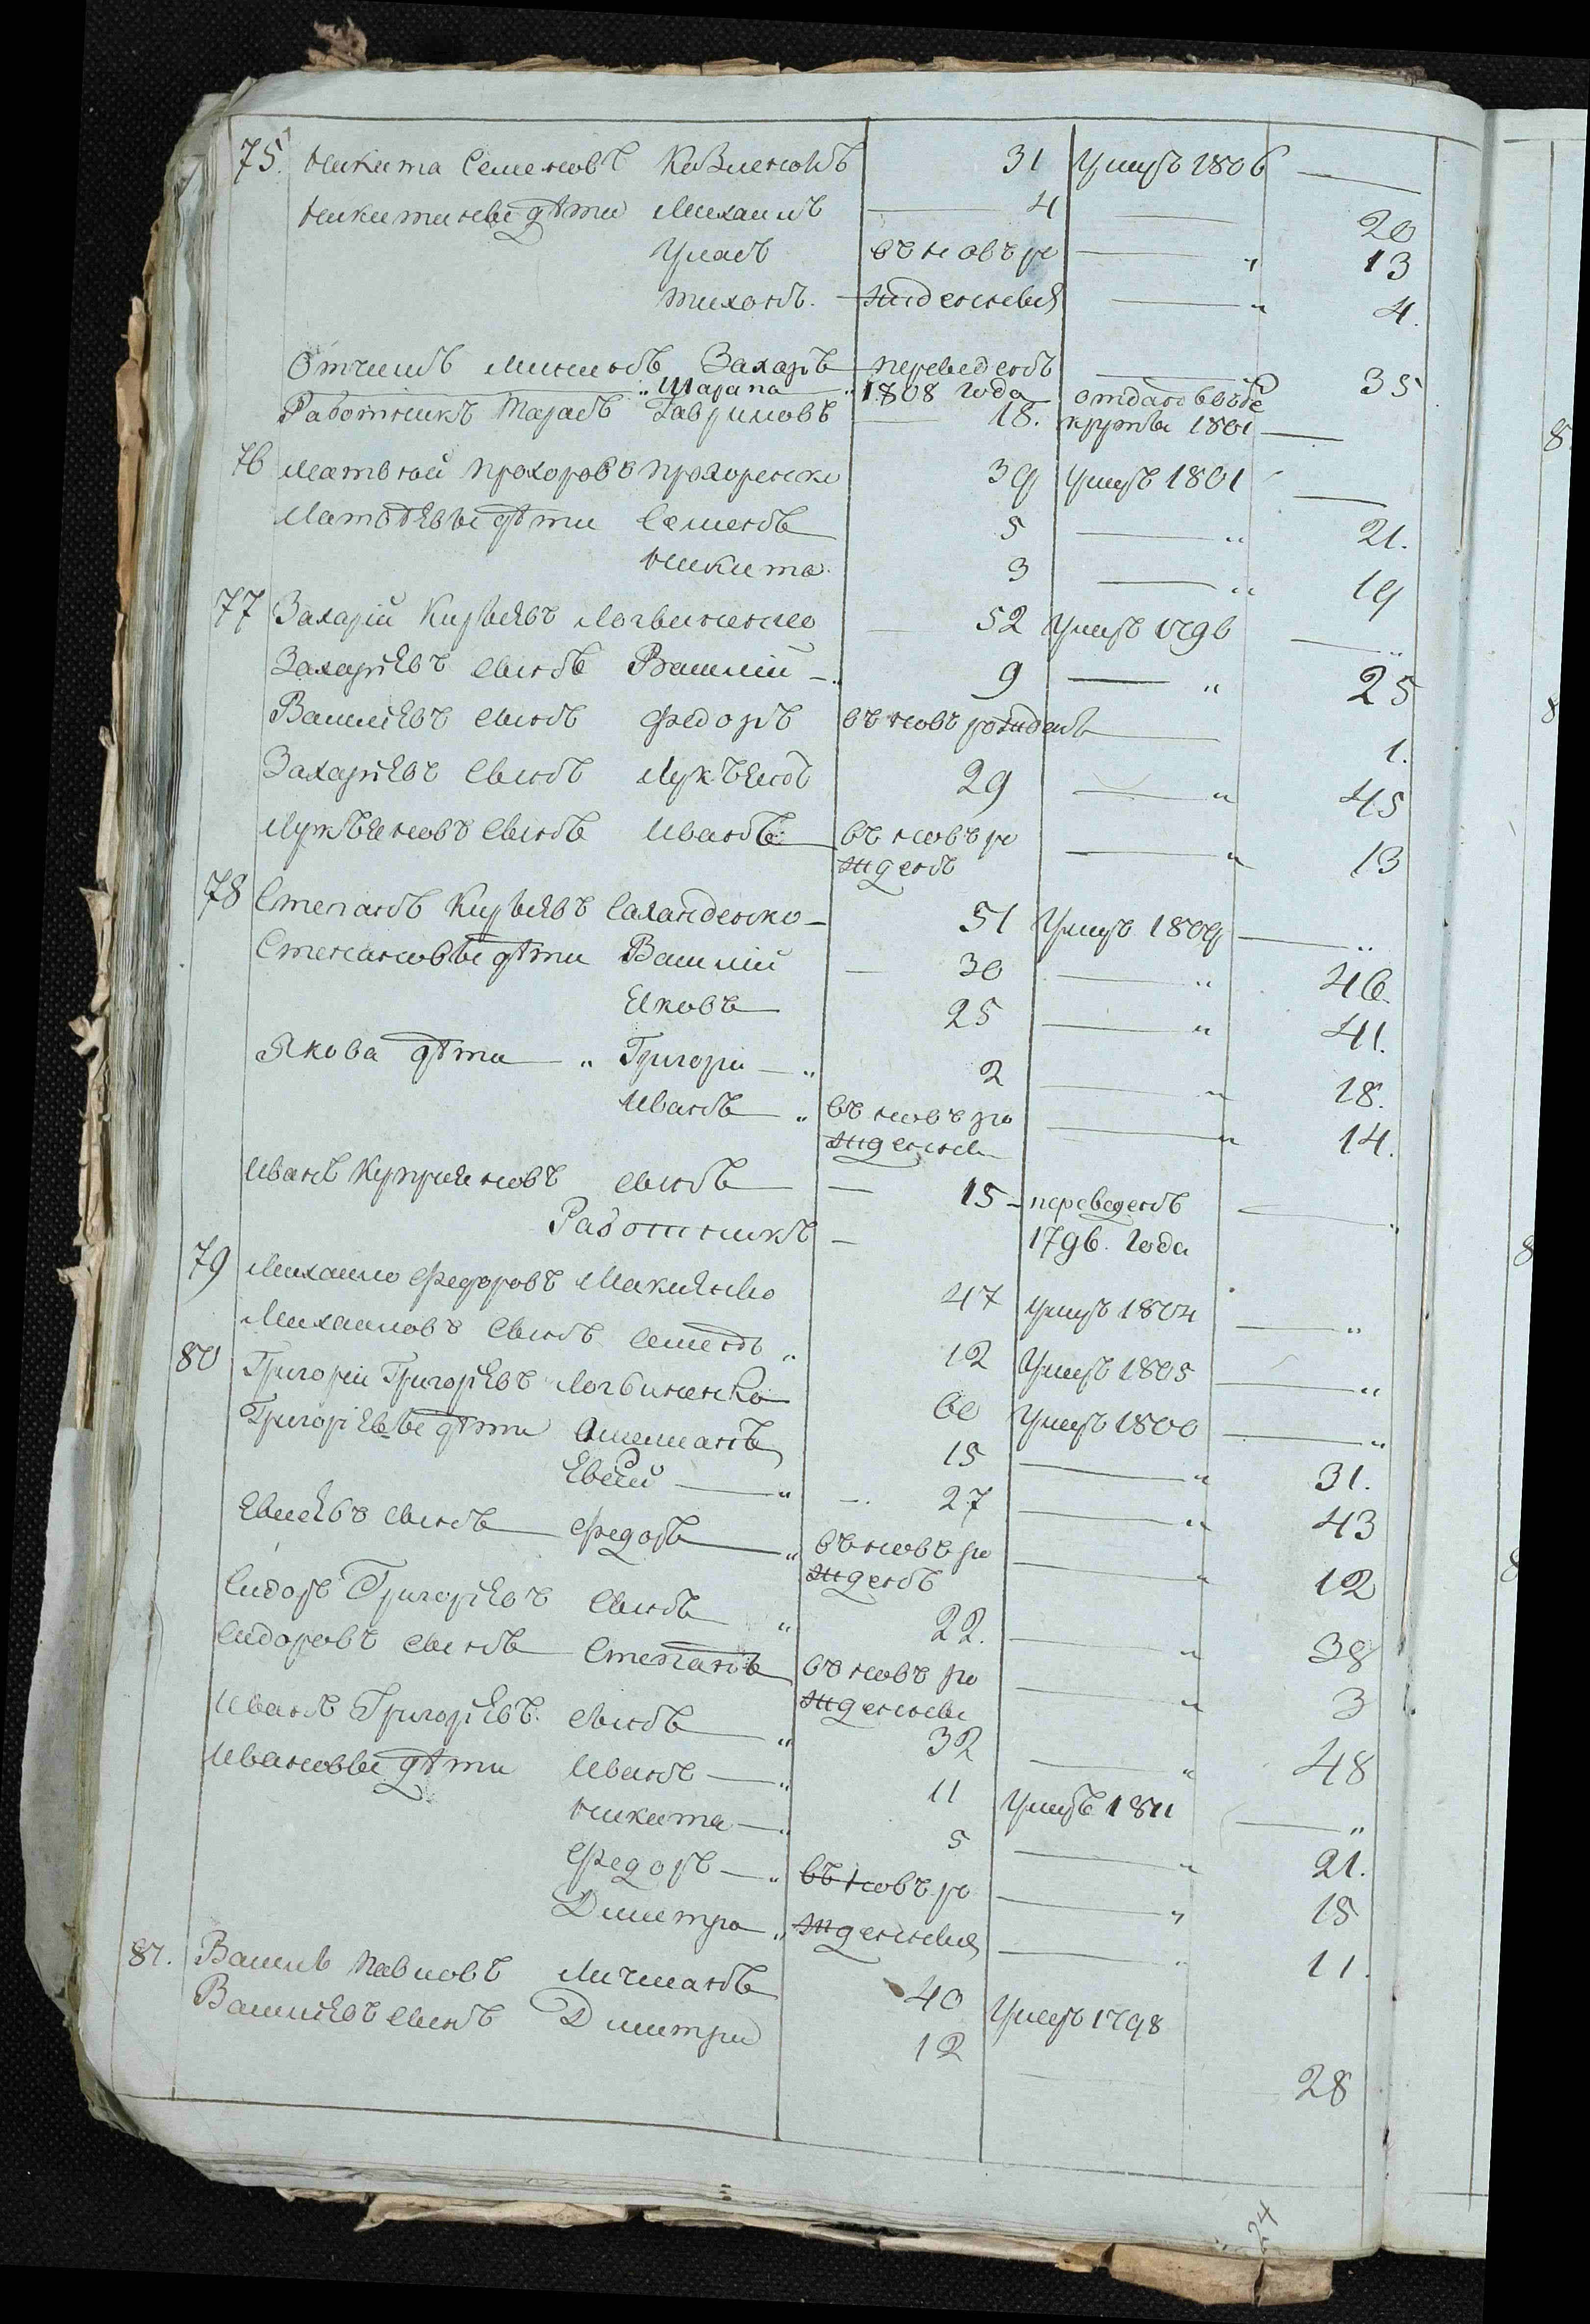 75. Никита Семеновъ Козленокъ 31 Умеръ 1806
Никитины дѣти Михаилъ 4 20
Уласъ въ новъ ро " 13
Тихонъ. жденныя " 4.
Отчимъ Захаръ переведенъ 35
Шарапа 1808 года отданъ въ рек
Работникъ Тарасъ Гавриловъ 18. круты 1801
76 Матвѣй Прохоровъ Прохоренко 39 Умеръ 1801
Матвѣевы дѣти Семенъ 5 " 21.
Никита 3 " 19
77 Захарій Кирѣевъ Логвиненко 52 Умеръ 1796 "
Захарѣевъ сынъ Василій 9 " 25
Василіевъ сынъ Федоръ въ новъ рожденъ 1.
Захарѣевъ сынъ Лукъянъ 29 " 45
Лукъяновъ сынъ Иванъ въ новъ ро " 13
жденъ
78 Степанъ Кирѣевъ 51 Умеръ 1809 "
Степановы дѣти Василій 30 " 46.
Яковъ 25 " 41.
Якова дѣти " Григори " 2 " 18.
Иванъ " въ новъ ро " 14.
жденны
Иванъ Куприяновъ сынъ 15 переведенъ "
Работникъ 1796. года
79 Михайло Федоровъ 47 умеръ 1804 "
Михаиловъ сынъ Семенъ " 12 Умеръ 1805 "
80 Григорій Григорѣевъ Логвиненко 60 Умеръ 1800 "
Григорѣевы дѣти 15 " 31.
Евсѣй " 27 " 43
Евсѣевъ сынъ Федоръ " въ новъ ро " 12
жденъ
Сидоръ Григорѣевъ сынъ " 22. " 38
Сидоровъ сынъ Степанъ въ новъ ро " 3
жденны
Иванъ Григорѣевъ сынъ " 32 " 48
Ивановы дѣти Иванъ " 11 Умеръ 1811 "
Никита " 5 " 21.
Федоръ " въ новъ ро " 15
Дмитро " жденныя " 11.
81. Василь Павловъ Личманъ 40 Умеръ 1798
Василѣевъ сынъ Дмитрий 12 28
24